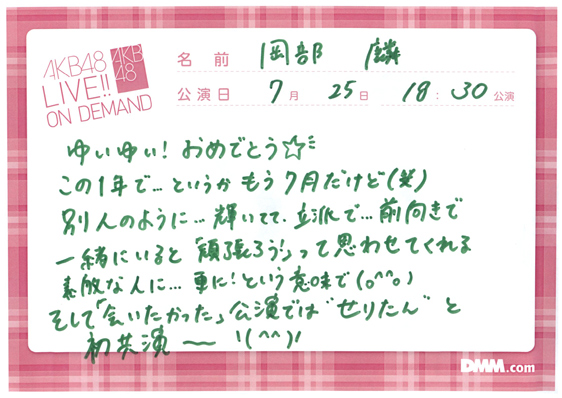 AKB48
LIVE!!
ON DEMAND
AKB
48
名前 岡部 麟
公演日 7月 25日 18:30公演
ゆいゆい! おめでとう☆
この1年で…というか もう7月だけど(笑)
別人のように… 輝いてて、立派で… 前向きで
一緒にいると「頑張ろう!」って思わせてくれる
素敵な人に… 更に!という意味で(o^^o)
そして「会いたかった」公演では"せりたん"と
初共演〜 '(^^)'
DMM.com